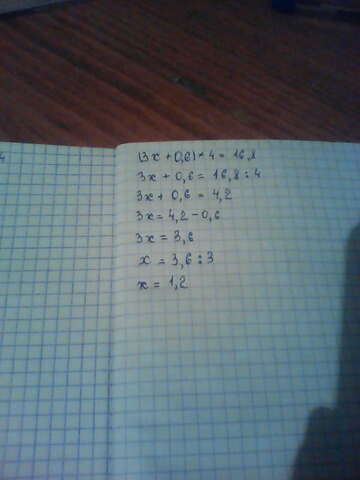 (3x + 0,6) • 4 = 16,8
3x + 0,6 = 16,8 : 4
3x + 0,6 = 4,2
3x = 4,2 - 0,6
3x = 3,6
x = 3,6 : 3
x = 1,2